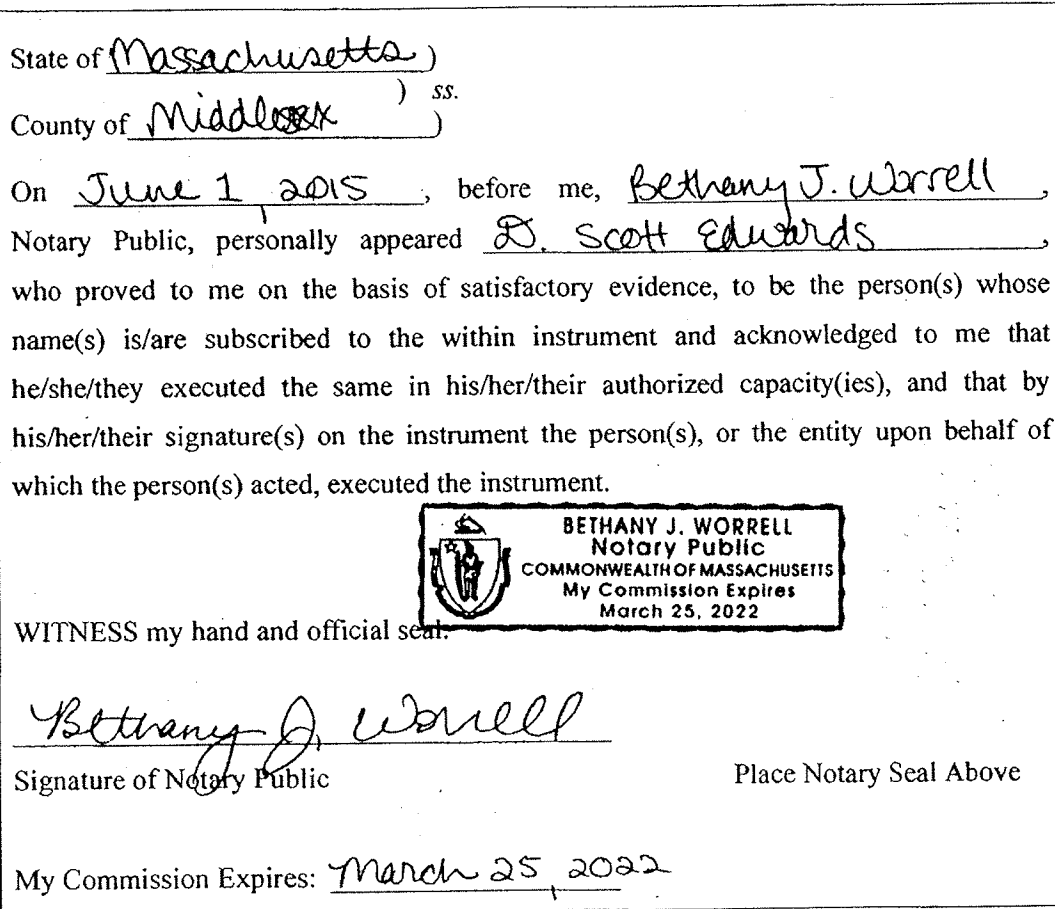 State of Massachusetts )
) ss.
County of Middlesex )
On June 1, 2015, before me, Bethany J. Worrell,
Notary Public, personally appeared D. Scott Edwards,
who proved to me on the basis of satisfactory evidence, to be the person(s) whose
name(s) is/are subscribed to the within instrument and acknowledged to me that
he/she/they executed the same in his/her/their authorized capacity(ies), and that by
his/her/their signature(s) on the instrument the person(s), or the entity upon behalf of
which the person(s) acted, executed the instrument.
BETHANY J. WORRELL
Notary Public
COMMONWEALTH OF MASSACHUSETTS
My Commission Expires
March 25, 2022
WITNESS my hand and official seal.
Bethany J. Worrell
Signature of Notary Public Place Notary Seal Above
My Commission Expires: March 25, 2022